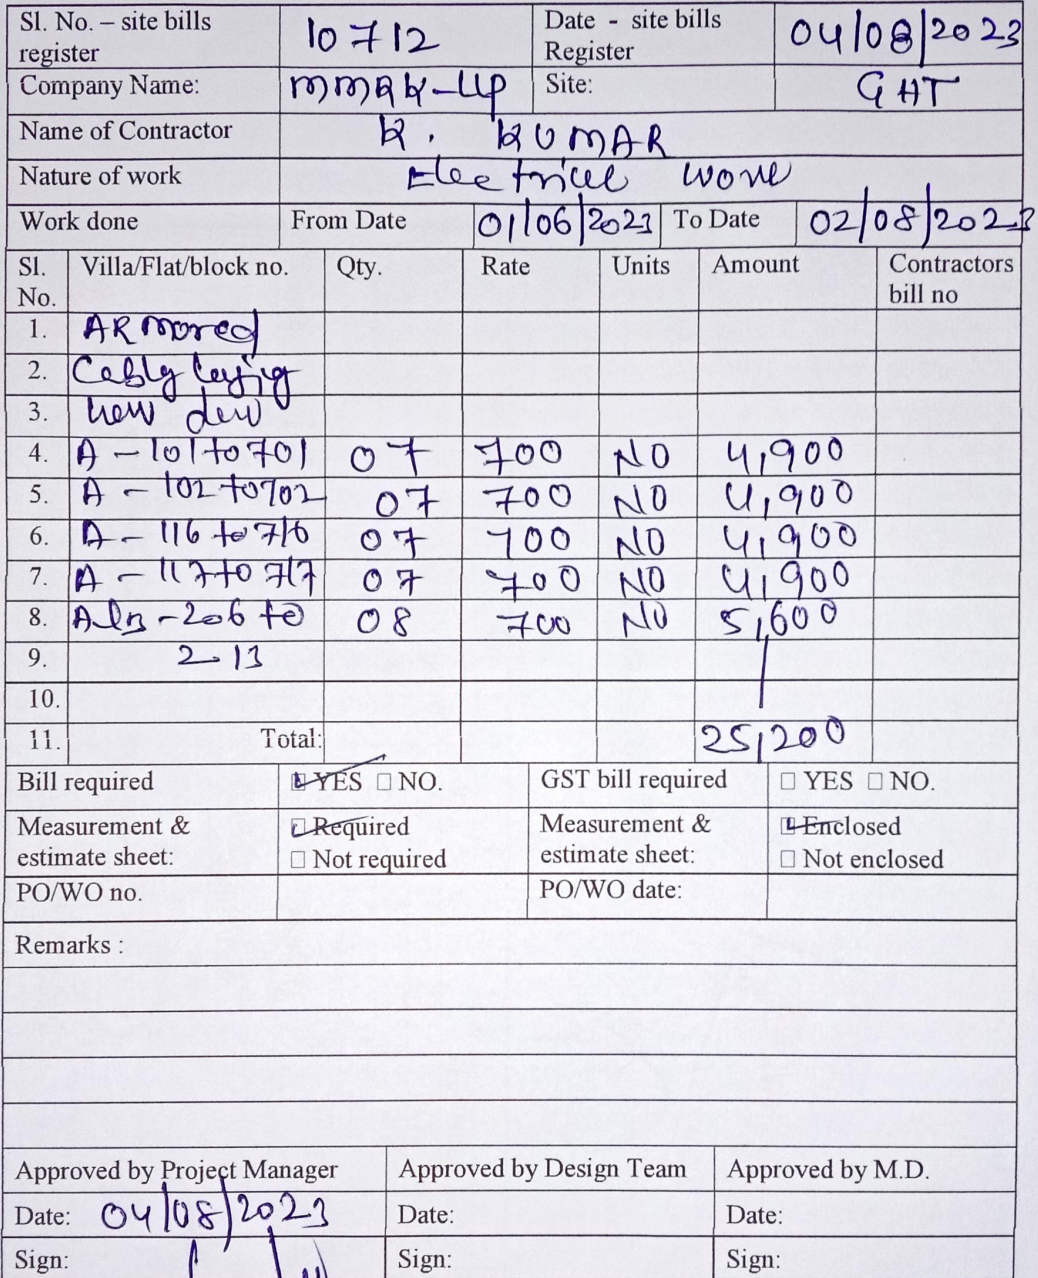 Sl. No. – site bills register 10712 Date - site bills Register 04/08/2023
Company Name: Site: GHT
Name of Contractor K. KUMAR
Nature of work Electrical work
Work done From Date 01/06/2023 To Date 02/08/2023
Sl. No. Villa/Flat/block no. Qty. Rate Units Amount Contractors bill no
1. ARmored
2. Cably
3. new
4. A - 101 to 701 07 700 NO 4,900
5. A - 102 to 702 07 700 NO 4,900
6. A - 116 to 716 07 700 NO 4,900
7. A - 117 to 717 07 700 NO 4,900
8. - 206 to 08 700 NO 5,600
9. 2-13
10.
11. Total: 25,200
Bill required YES NO. GST bill required YES NO.
Measurement & estimate sheet: Required Not required Measurement & estimate sheet: Enclosed Not enclosed
PO/WO no. PO/WO date:
Remarks :
Approved by Project Manager Approved by Design Team Approved by M.D.
Date: 04/08/2023 Date: Date:
Sign: Sign: Sign: